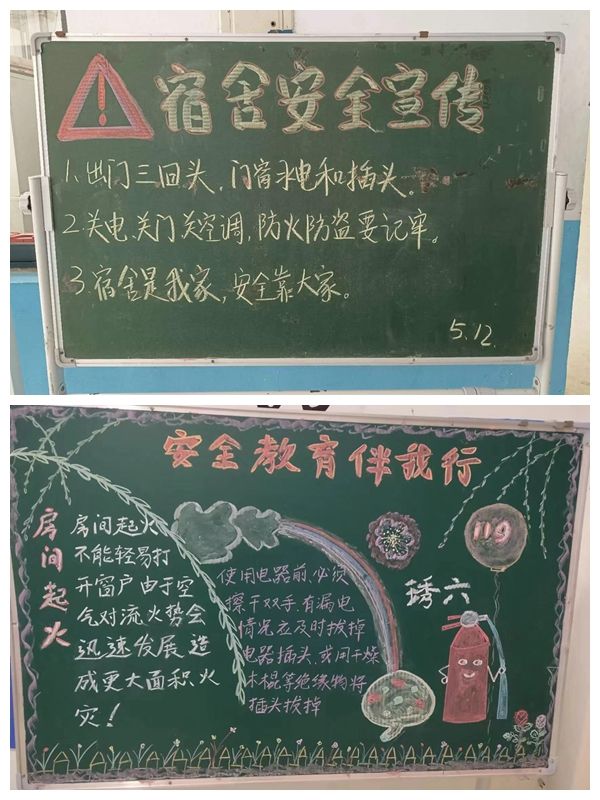 宿舍安全宣传
1.出门三回头,门窗水电和插头。
2.关电、关门关空调,防火防盗要记牢。
3.宿舍是我家,安全靠大家。
5.12.
安全教育伴我行
房间起火
房间起火
不能轻易打
开窗户由于空
气对流火势会
迅速发展造
成更大面积火
灾!
使用电器前、必须
擦干双手、有漏电
情况应及时拔掉
电器插头、或用干燥
木棍等绝缘物将
插头拔掉
119
琇六